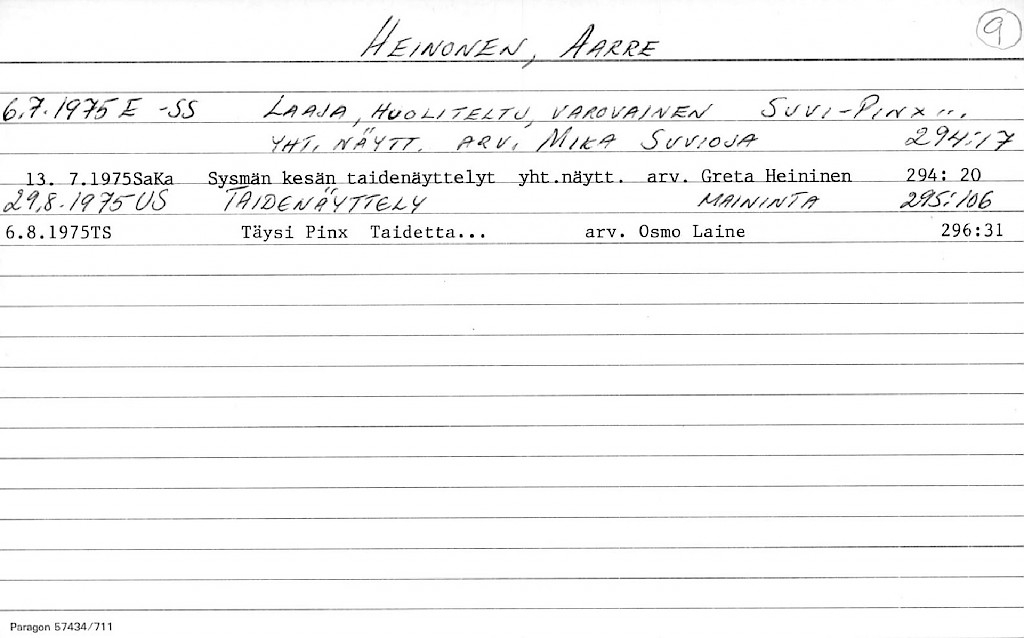 HEINONEN, AARRE 9
6.7.1975 E -SS LAAJA, HUOLITELTU, VAROVAINEN SUVI-PINX...
YHT. NÄYTT. ARV. MIKA SUVIOJA 294:17
13. 7.1975SaKa Sysmän kesän taidenäyttelyt yht.näytt. arv. Greta Heininen 294: 20
29.8.1975 US TAIDENÄYTTELY MAININTA 295:106
6.8.1975TS Täysi Pinx Taidetta... arv. Osmo Laine 296:31
Paragon 57434/711